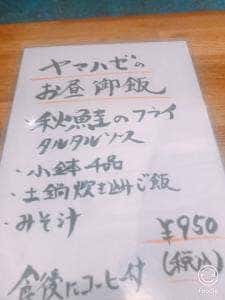 ヤマハゼの
お昼御飯
・秋鮭のフライ
タルタルソース
・小鉢4品
・土鍋炊き込みご飯
・みそ汁
¥950
(税込)
食後にコーヒー付
Foodie